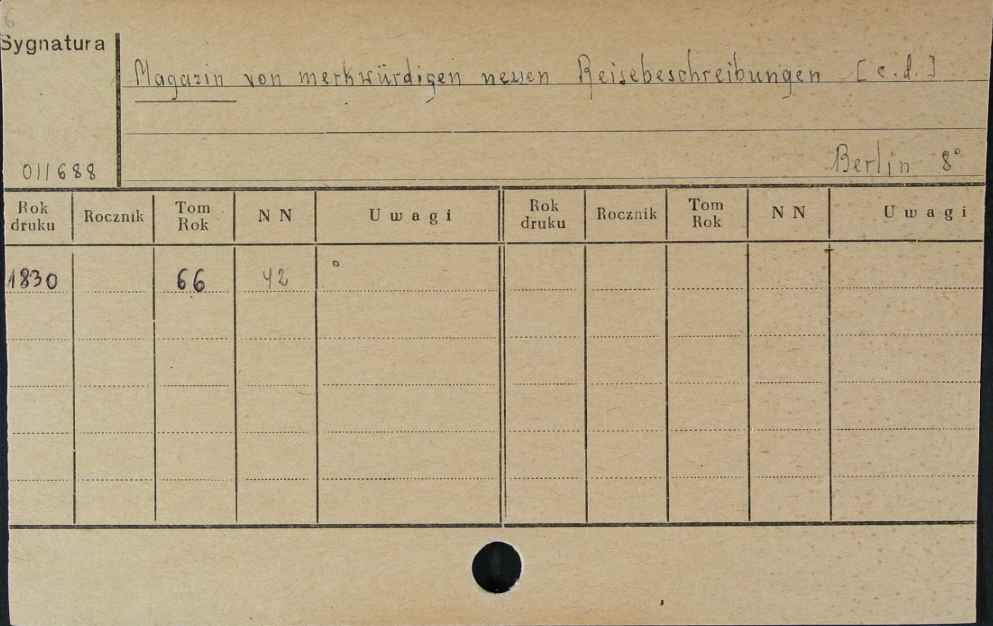 6
Sygnatura
Magazin von merkwürdigen neuen Reisebeschreibungen [c.d.]
011688
Berlin 8°
Rok druku Rocznik Tom Rok N N Uwagi Rok druku Rocznik Tom Rok N N Uwagi
1830 66 42